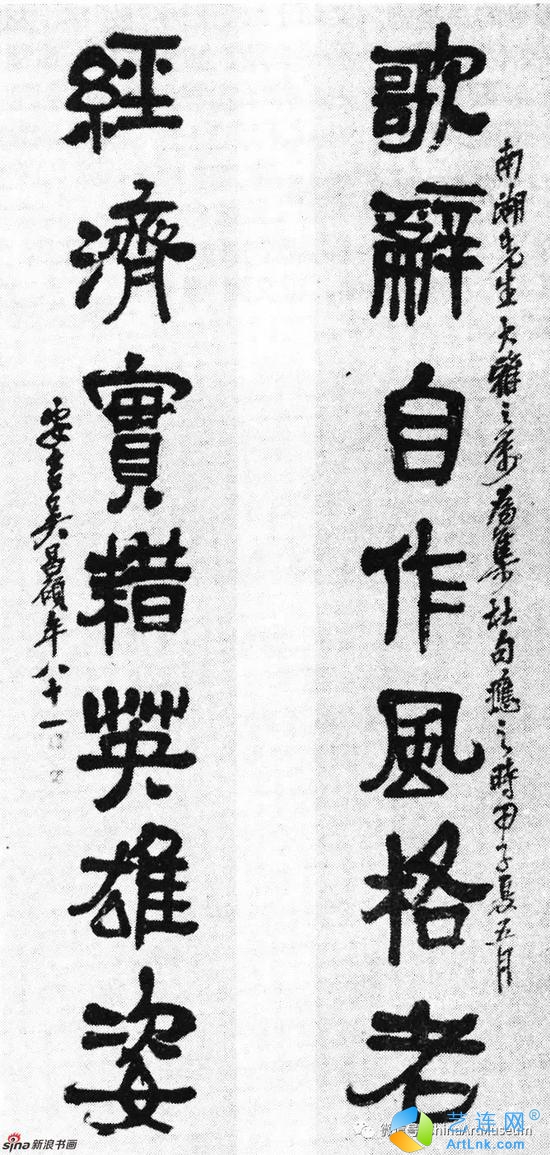 南湖先生大雅之屬為集杜句應之時甲子夏五月
歌辭自作風格老
經濟實耤英雄姿
安吉吳昌碩年八十一
sina新浪书画
微信号: ChinaArtMuseum
艺连网®
ArtLnk.com